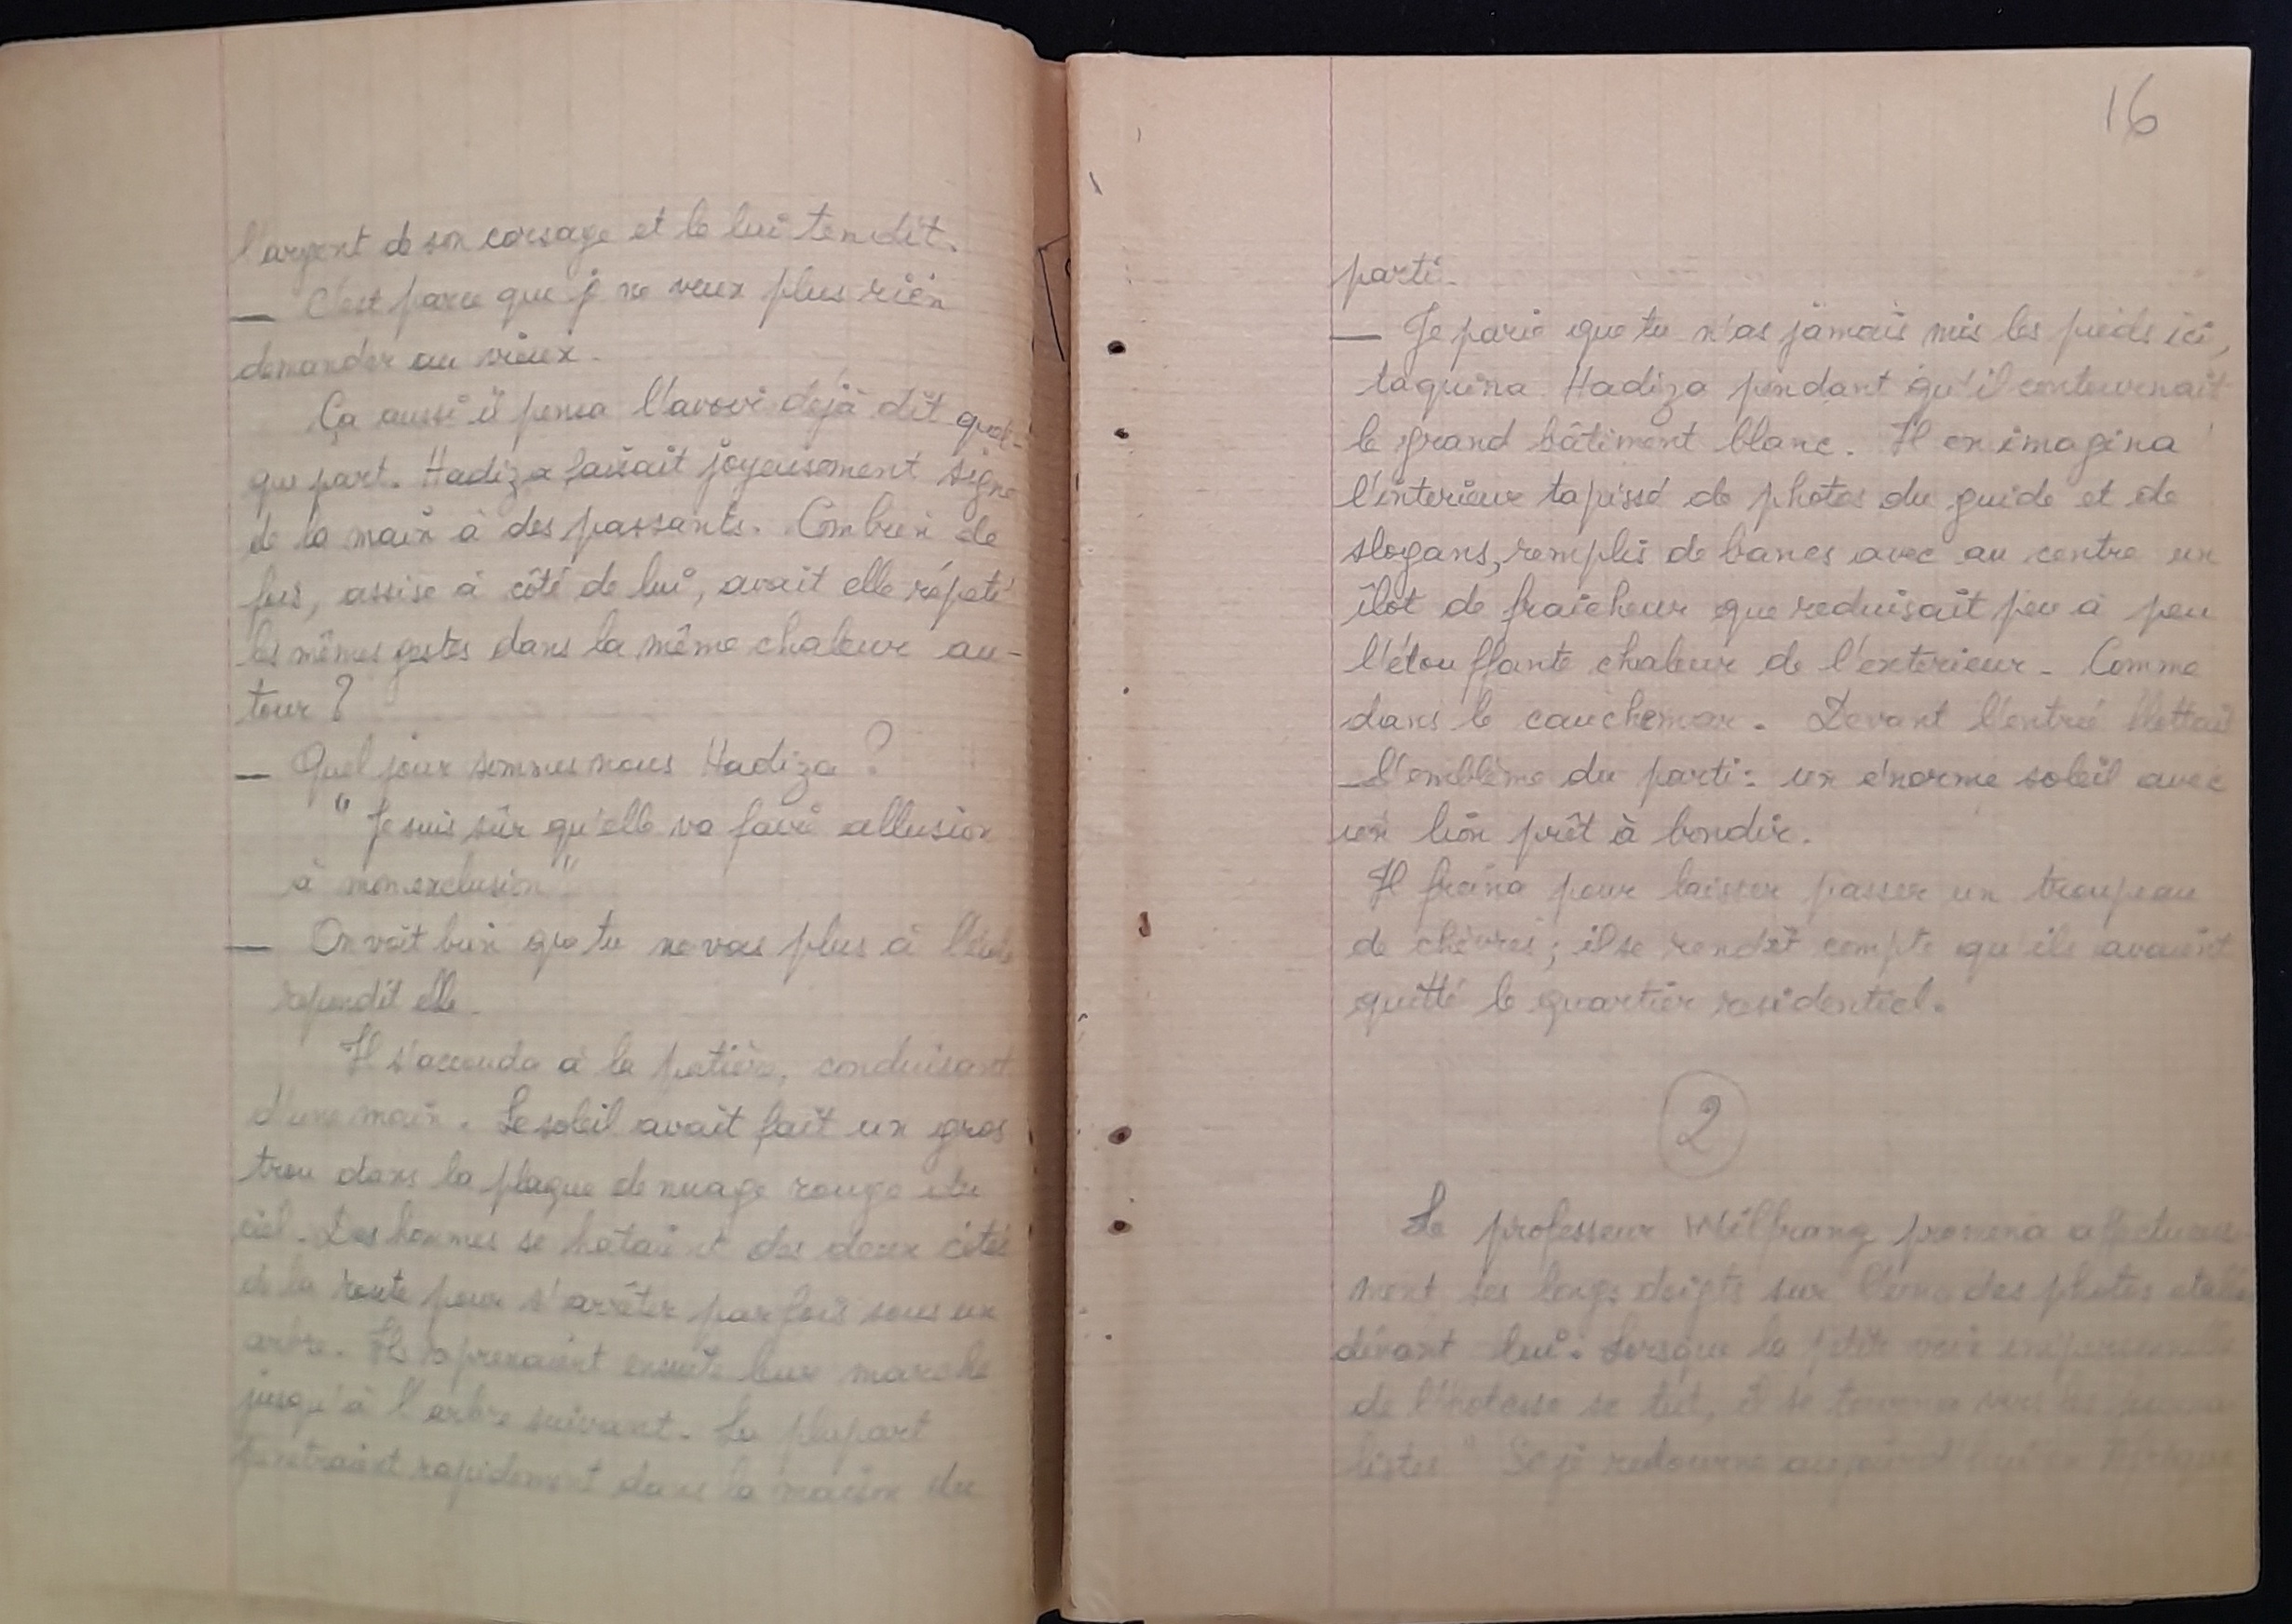 l'argent de son corsage et le lui tendit.
— C'est parce que je ne veux plus rien
demander au vieux.
Ça aussi il pensa l'avoir déjà dit quel-
que part. Hadiza faisait joyeusement signe
de la main à des passants. Combien de
fois, assise à côté de lui, avait elle répété
les mêmes gestes dans la même chaleur au-
tour ?
— Quel jour sommes nous Hadiza ?
" Je suis sûr qu'elle va faire allusion
à mon exclusion "
— On voit bien que tu ne vas plus à l'école
repondit elle.
Il s'accouda à la potière, conduisant
d'une main. Le soleil avait fait un gros
trou dans la plaque de nuage rouge du
ciel. Des hommes se hataient des deux côtés
de la route pour s'arrêter parfois sous un
arbre. Ils reprenaient ensuite leur marche
jusqu'à l'arbre suivant. La plupart
penetraient rapidement dans la maison du
16
parti.
— Je parie que tu n'as jamais mis les pieds ici,
taquina Hadiza pendant qu'il contournait
le grand bâtiment blanc. Il en imagina
l'interieur tapissé de photos du guide et de
slogans, remplis de bancs avec au centre un
îlot de fraîcheur que reduisait peu à peu
l'étouffante chaleur de l'exterieur. Comme
dans le cauchemar. Devant l'entrée flottait
l'emblème du parti : un énorme soleil avec
un lion prêt à bondir.
Il freina pour laisser passer un troupeau
de chèvres ; il se rendit compte qu'ils avaient
quitté le quartier residentiel.
2
Le professeur Wilfrang promena affectueuse
ment ses longs doigts sur l'une des photos
devant lui. Lorsque la petite voix impersonnelle
de l'hotesse se tut, il se tourna vers les journa
listes " Si je retourne aujourd'hui en Afrique